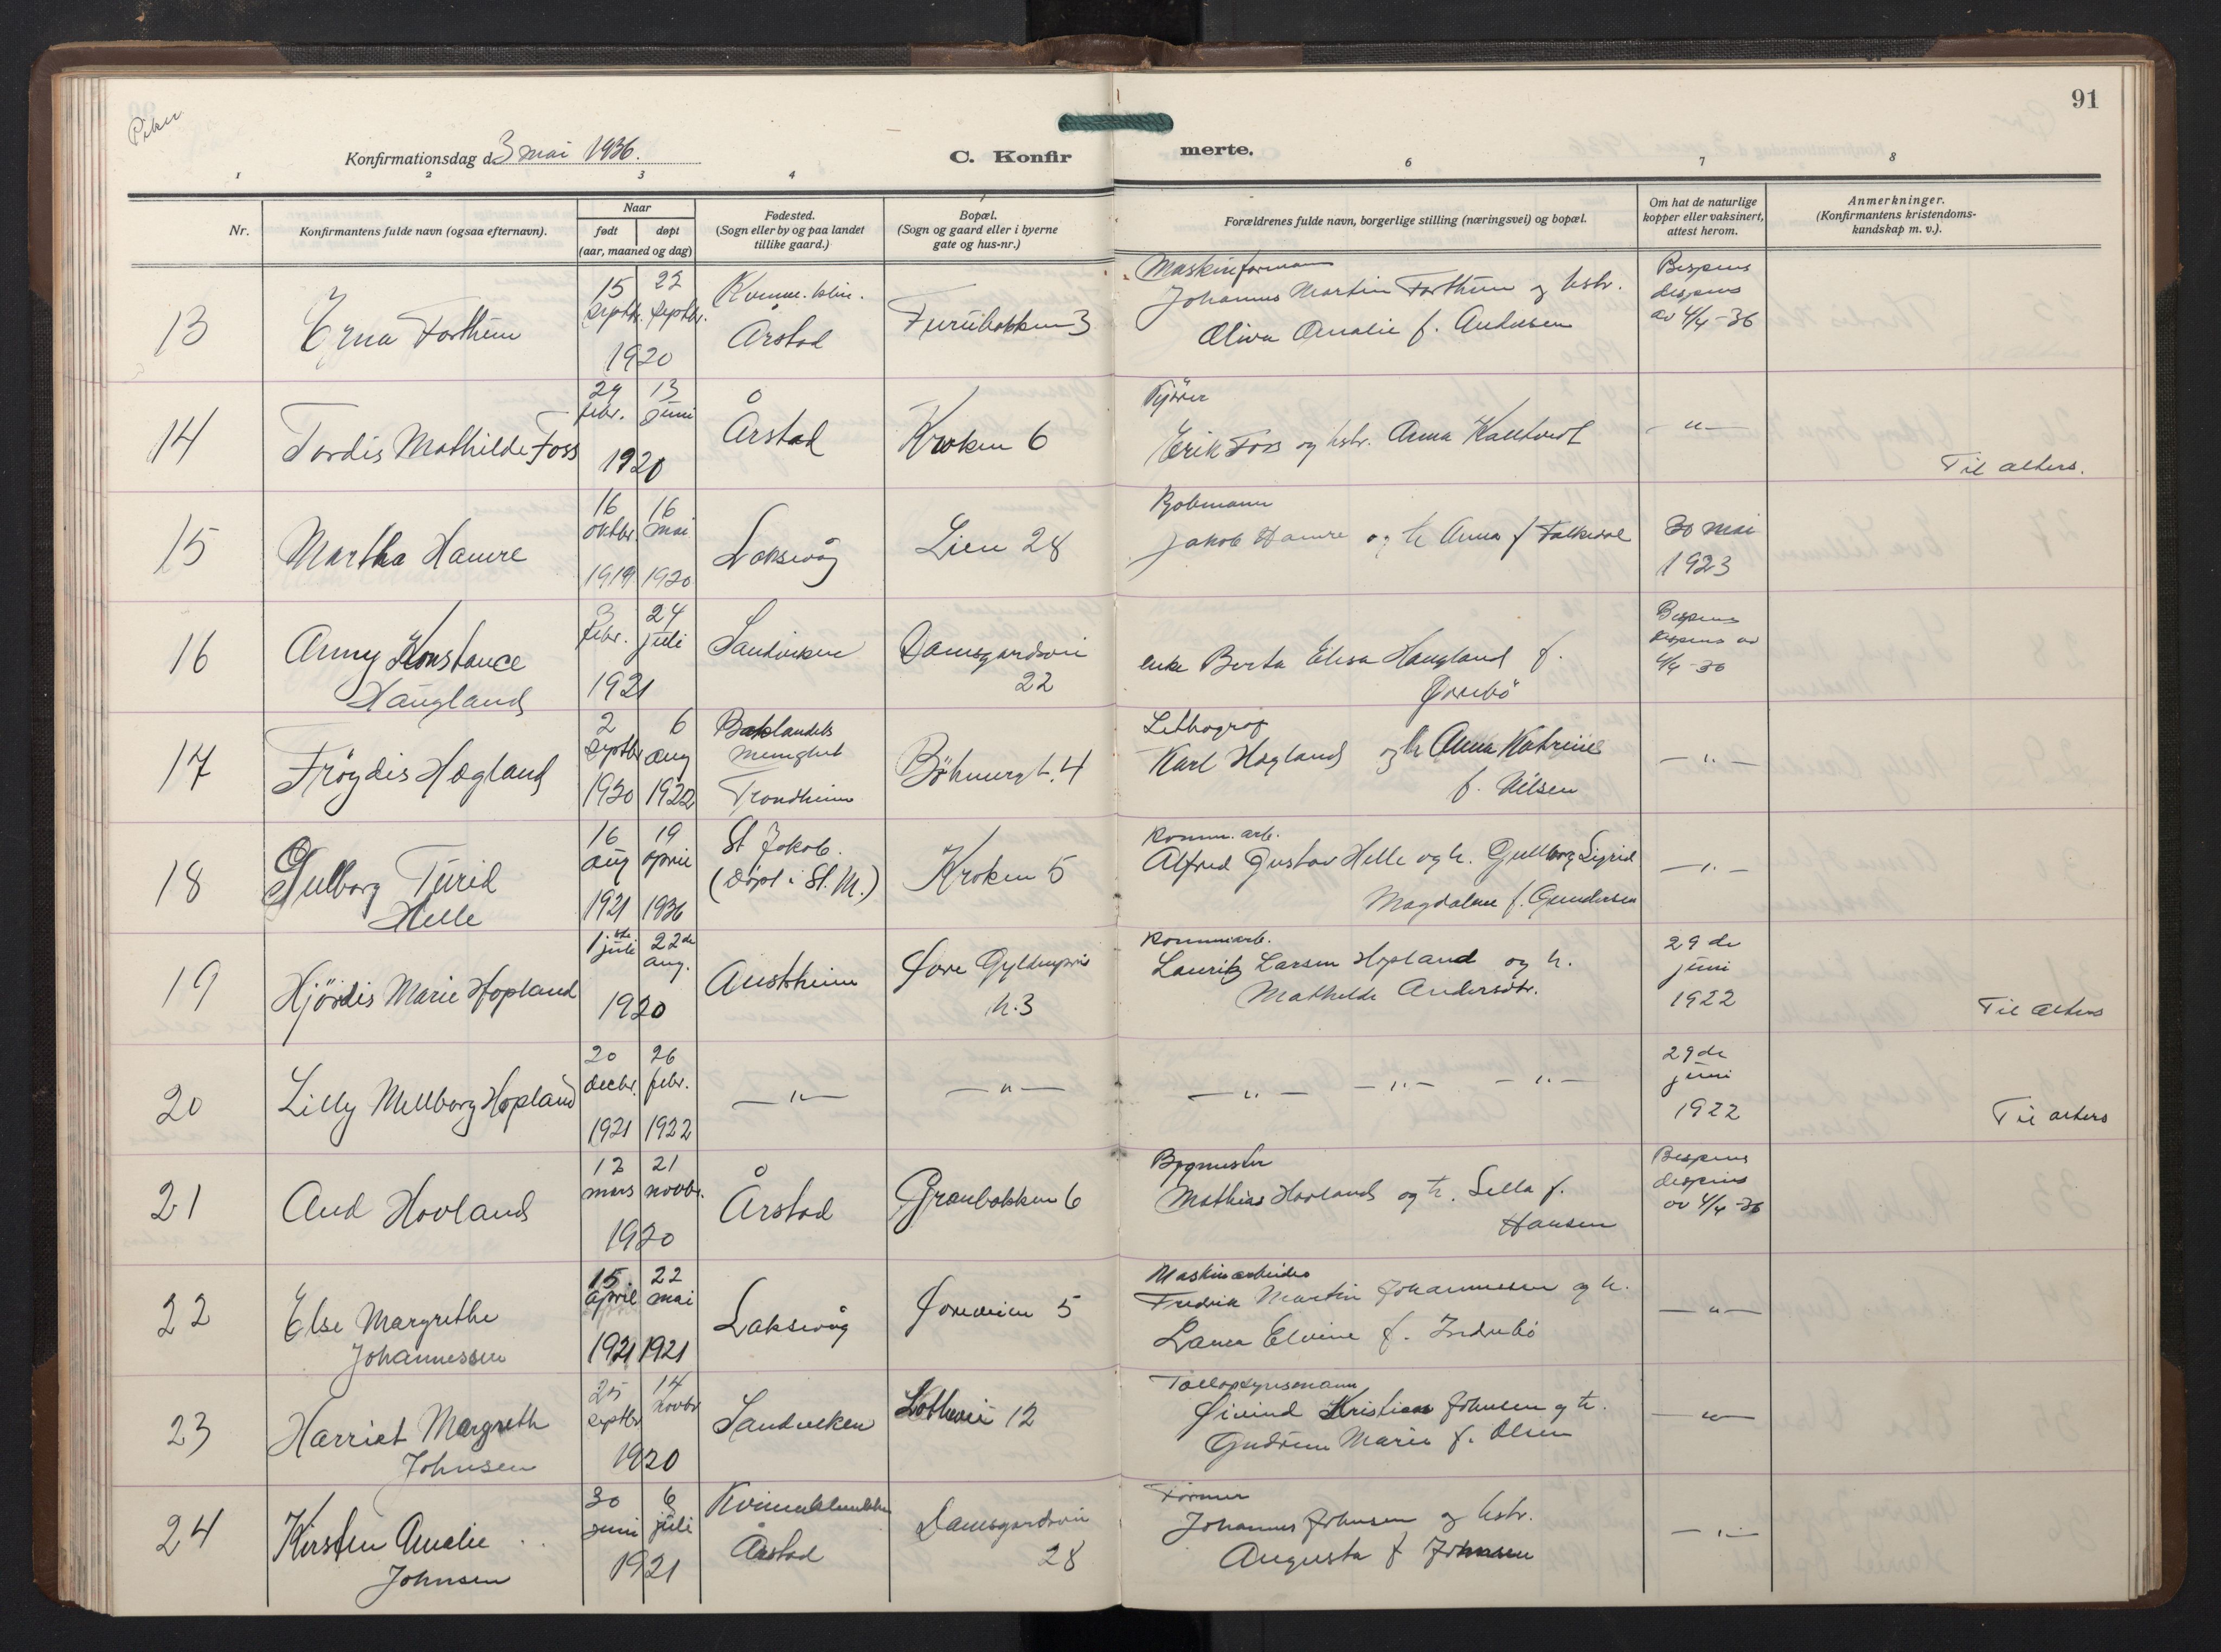 Piker
91
Konfirmationsdag d. 3 mai 1936.
C. Konfir
merte.
1 2 3 4 6 7 8
Nr.
Konfirmantens fulde navn (ogsaa efternavn).
Naar
født døpt
(aar, maaned og dag)
Fødested.
(Sogn eller by og paa landet
tillike gaard.)
Bopæl.
(Sogn og gaard eller i byerne
gate og hus-nr.)
Forældrenes fulde navn, borgerlige stilling (næringsvei) og bopæl.
Om hat de naturlige
kopper eller vaksinert,
attest herom.
Anmerkninger.
(Konfirmantens kristendoms-
kundskap m. v.).
13
Erna Forthun
15 22
septbr. septbr.
1920
Kvinne. klin.
Årstad
Furubakken 3
Maskinformann
Johannes Martin Forthun og hstr.
Oliva Amalie f. Andersen
Bispens
dispens
av 4/4-36
14
Tordis Mathilde Foss
29 13
febr. juni
1920
Årstad
Kroken 6
Kjører
Erik Foss og hstr. Anna Kalltvedt
— " —
Til alters.
15
Martha Hamre
16 16
oktbr. mai
1919 1920
Laksevåg
Lien 28
Jakob Hamre og h Anna f Falkedal
30 mai
1923
16
Anny Konstance
Haugland
3 24
febr. juli
1921
Sandviken
Damsgardsvei
22
enke Berta Elisa Haugland f.
Bispens
dispens av
4/4-36
17
Frøydis Høgland
2 6
septbr aug
1920 1922
Baklandets
menighet
Trondheim
Böhmergt. 4
Lithograf
Karl Høgland og h Anna Katrine
f. Nilsen
— " —
18
Gullborg Turid
Helle
16 19
aug april
1921 1936
St Jakob.
(Døpt i St. M.)
Kroken 5
Komm. arb.
Alfred Gustav Helle og h. Gullborg Sigrid
Magdalene f. Gundersen
— " —
19
Hjørdis Marie Hopland
1.ste 22de
juli aug.
1920
Austrheim
Øvre Gyldenpris
h. 3
Kommarb.
Lauritz Larsen Hopland og h.
Mathilde Andersdtr.
29 de
juni
1922
Til alters
20
Lilly Mellborg Hopland
20 26
decbr. febr.
1921 1922
— " —
— " —
— " — — " — — " —
29 de
juni
1922
Til alters
21
Aud Hovland
12 21
mars novbr.
1920
Årstad
Granbakken 6
Bygmester
Mathias Hovland og h. Sella f.
Hansen
Bispens
dispens
av 4/4-36
22
Else Margrethe
Johannessen
15. 22
april mai
1921 1921
Laksevåg
Øvreveien 5
Maskinarbeider
Fredrik Martin Johannessen og h.
Laura Elvine f. Indrebø
— " —
23
Harriet Margreth
Johnsen
25 14
septbr novbr
1920
Sandviken
Lotheveien 12
Tollopsynsmann
Øivind Kristian Johnsen og h.
Gudrun Marie f. Olsen
— " —
24
Kirsten Amalie
Johnsen
30 6
juni juli
1921
Kvinneklinikken
Årstad
Damsgardsvei
28
Former
Johannes Johnsen og hstr.
Augusta f Johnsen
— " —